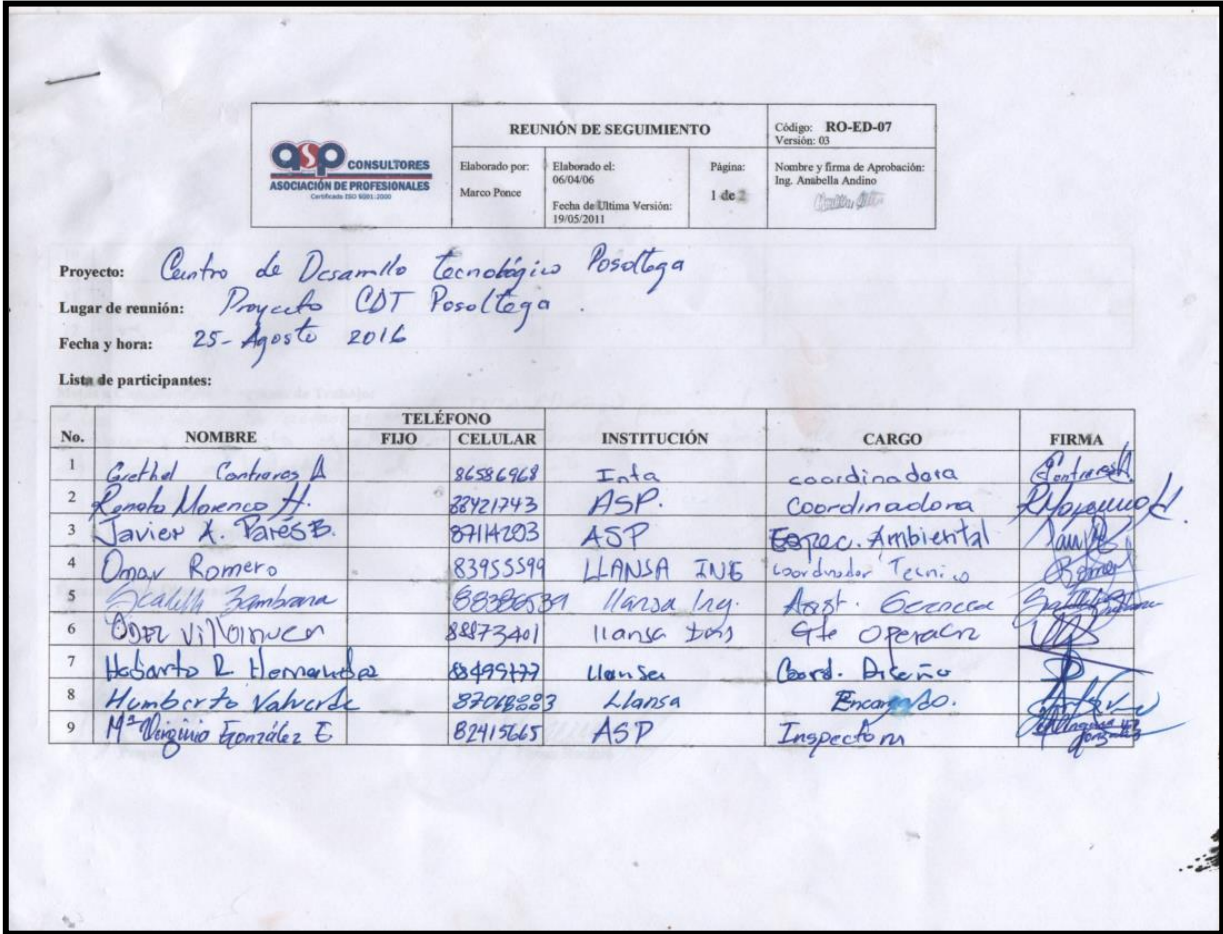 asp CONSULTORES
ASOCIACIÓN DE PROFESIONALES
Certificado ISO 9001:2000
REUNIÓN DE SEGUIMIENTO
Código: RO-ED-07
Versión: 03
Elaborado por:
Marco Ponce
Elaborado el:
06/04/06
Fecha de Ultima Versión:
19/05/2011
Página:
1 de 2
Nombre y firma de Aprobación:
Ing. Anabella Andino
Proyecto: Centro de Desarrollo tecnológico Posoltega
Lugar de reunión: Proyecto CDT Posoltega
Fecha y hora: 25- Agosto 2016
Lista de participantes:
No. NOMBRE TELÉFONO FIJO CELULAR INSTITUCIÓN CARGO FIRMA
1 Grethel Contreras A 86586968 Inta coordinadora
2 Renata Morenco H. 88421743 ASP. Coordinadora
3 Javier A. Parés B. 87114203 ASP Espec. Ambiental
4 Omar Romero 83955599 LLANSA ING coordinador Tecnico
5 Zambrana 88386539 llansa Ing. Asist.
6 88873401 llansa Gte Operacn
7 R Hernandez 88499177 llansa Coord. Diseño
8 Humberto Valverde Llansa Encargado.
9 Mª Virginia González E 82415665 ASP Inspectora